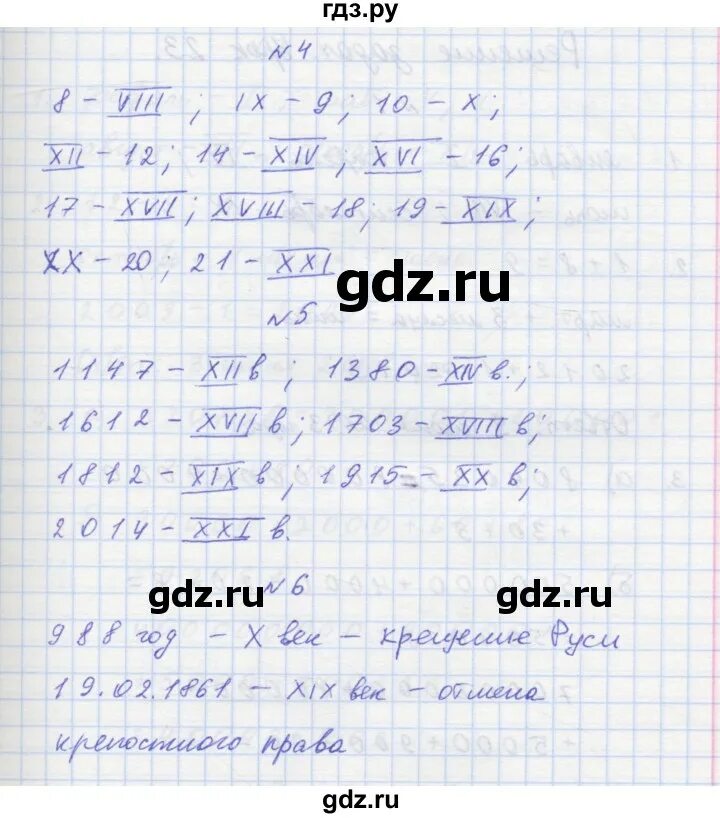 гдз.ру
№4
8 - VIII ; IX - 9 ; 10 - X ;
XII - 12 ; 14 - XIV ; XVI - 16 ;
17 - XVII ; XVIII - 18 ; 19 - XIX ;
XX - 20 ; 21 - XXI
gdz.ru
№5
1147 - XII в ; 1380 - XIV в. ;
1612 - XVII в ; 1703 - XVIII в ;
1812 - XIX в ; 1915 - XX в ;
2014 - XXI в.
№6
gdz.ru
gdz.ru
988 год - X век - крещение Руси
19.02.1861 - XIX век - отмена
крепостного права
gdz.ru